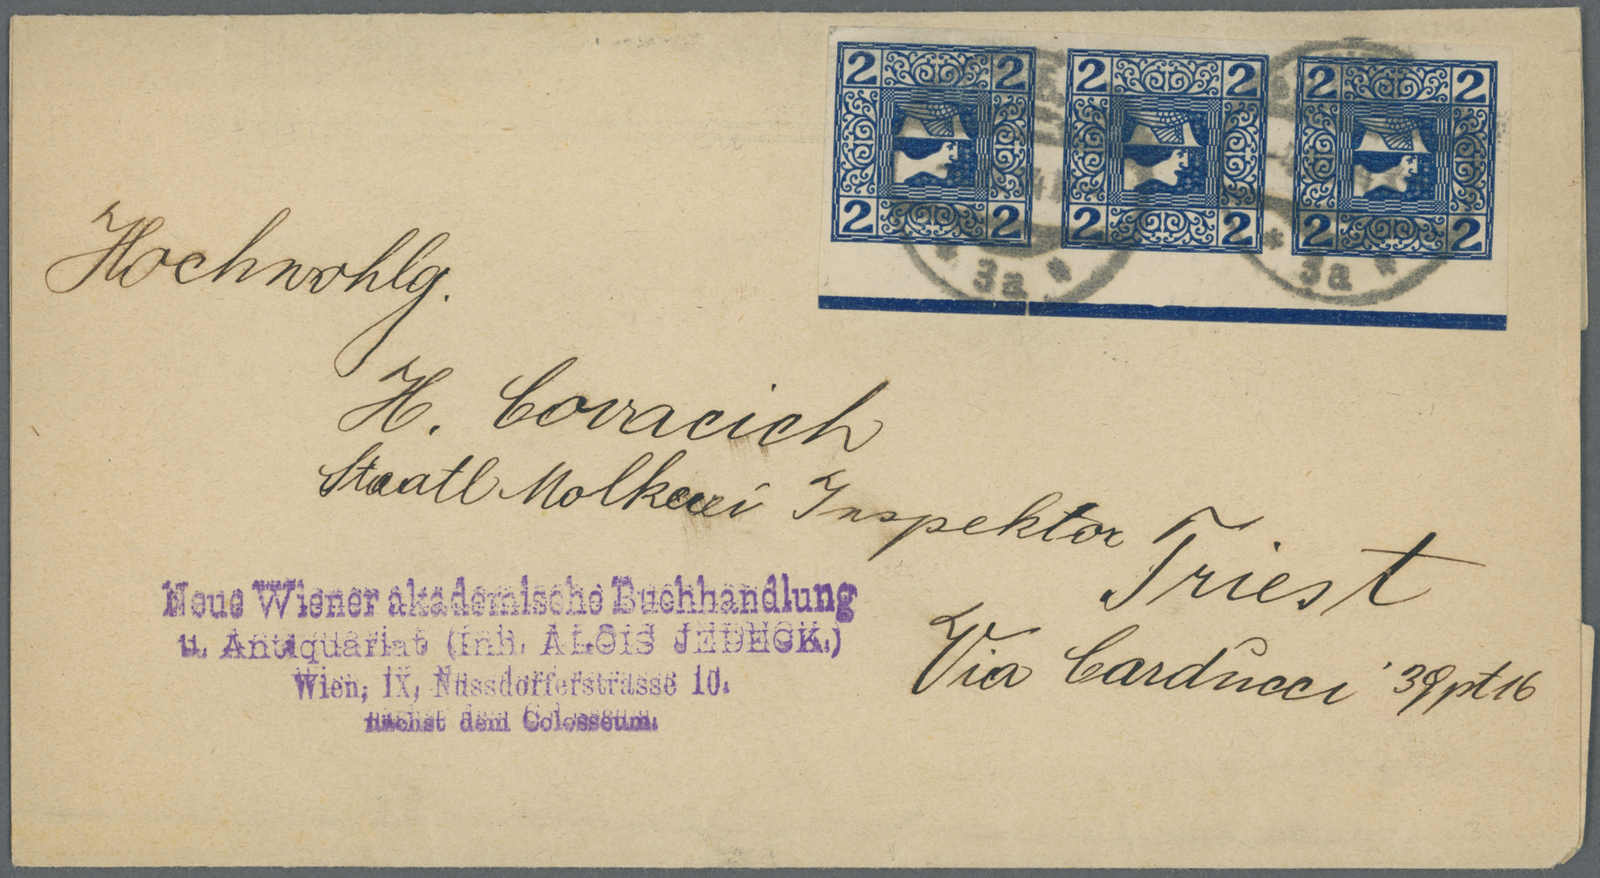 2 2 2 2 2 2
2 2 2 2 2 2
* 3a * * 3a *
Hochwohlg.
H. Covacich
Staatl Molkerei Inspektor
Triest
Via Carducci 39 pt 16
Neue Wiener akademische Buchhandlung
u. Antiquariat (Inh. ALOIS JEDECK.)
Wien, IX, Nussdorferstrasse 10.
nächst dem Colosseum.